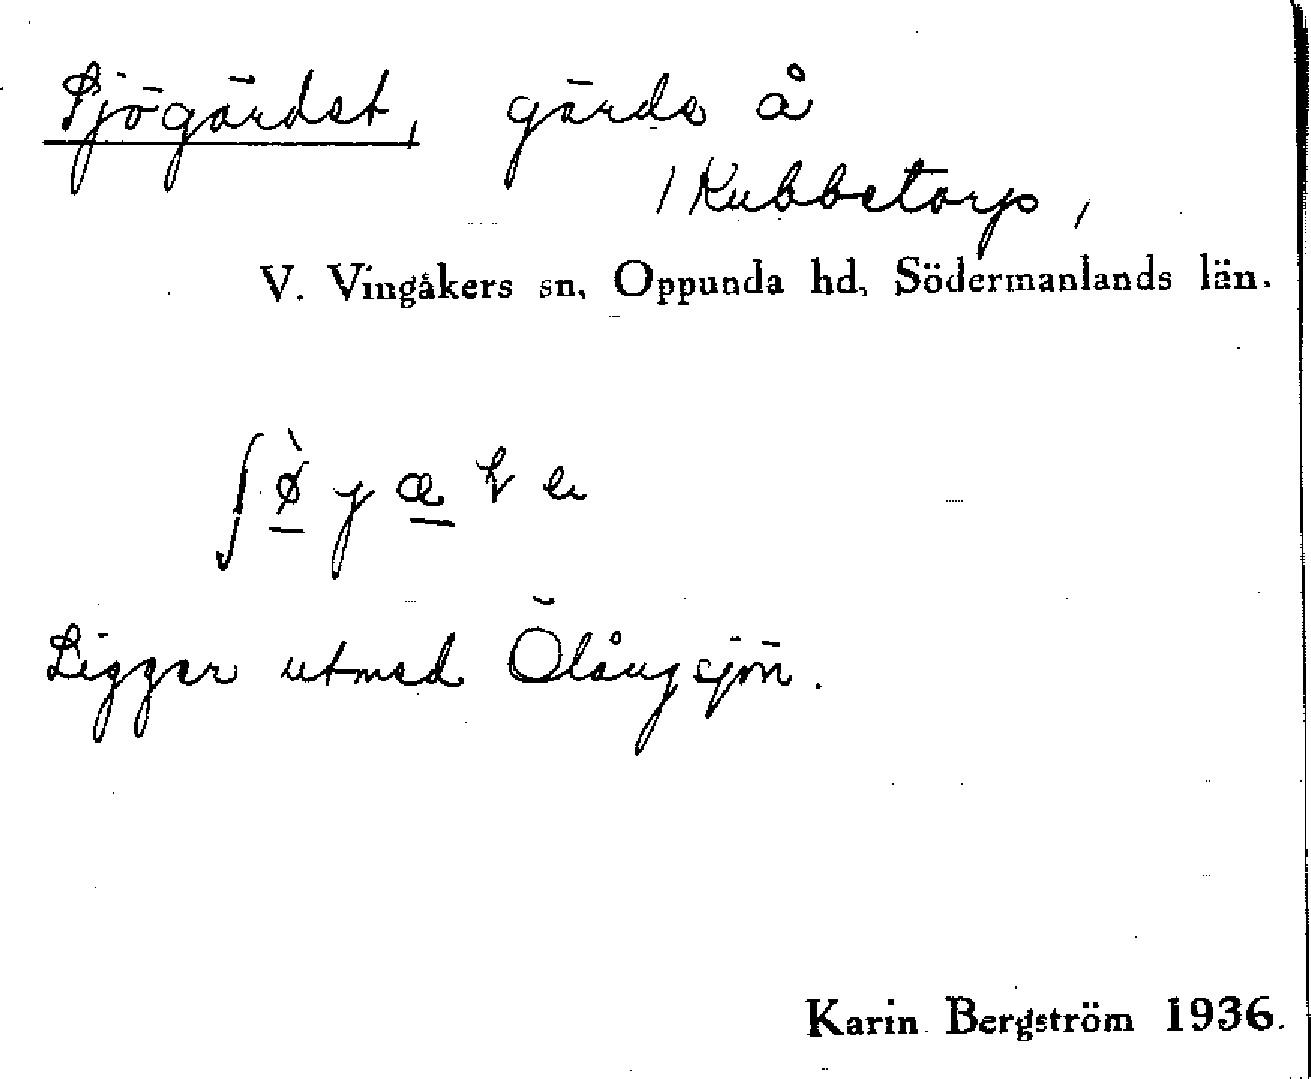 Sjögärdet, gärde å
/ Kubbetorp,
V. Vingåkers sn, Oppunda hd, Södermanlands län.
Ligger utmed Ölångsjön.
Karin Bergström 1936.